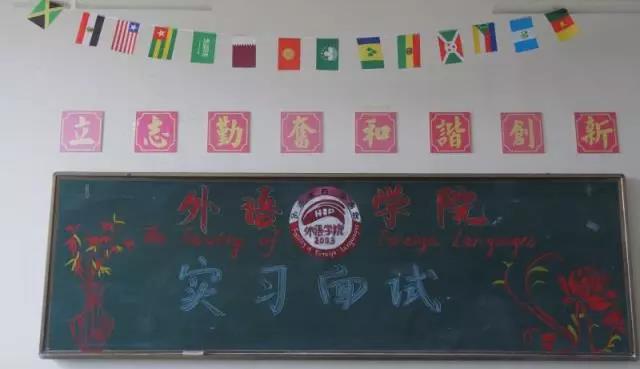 立志勤奮和諧創新
外语学院
The Faculty of Foreign Languages
外语学院
2003
实习面试